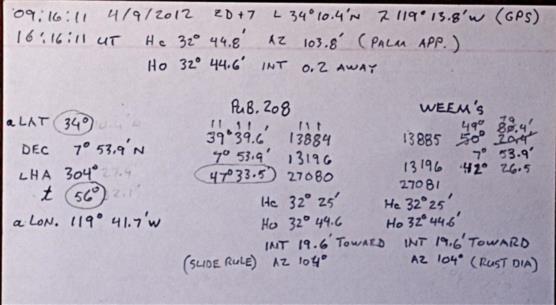 09:16:11 4/9/2012 ZD+7 L 34° 10.4'N λ 119° 13.8'W (GPS)
16:16:11 UT Hc 32° 44.8' AZ 103.8° (PALM APP.)
Ho 32° 44.6' INT 0.2 AWAY
PUB. 208 WEEM'S
a LAT 34° 39° 39.6' 13884 13885 50° 20.4' 49° 80.4' 79
DEC 7° 53.9' N 7° 53.9' 13196 7° 53.9'
LHA 304° 47° 33.5' 27080 13196 42° 26.5
t 56° 27081
Hc 32° 25' Hc 32° 25'
a LON. 119° 41.7'W Ho 32° 44.6 Ho 32° 44.6'
INT 19.6' TOWARD INT 19.6' TOWARD
(SLIDE RULE) AZ 104° AZ 104° (RUST DIA)